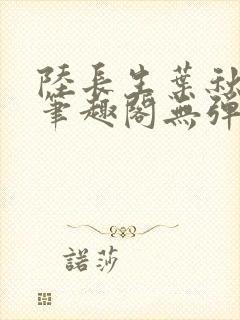 陸長生葉秋
筆趣閣無彈
諾莎